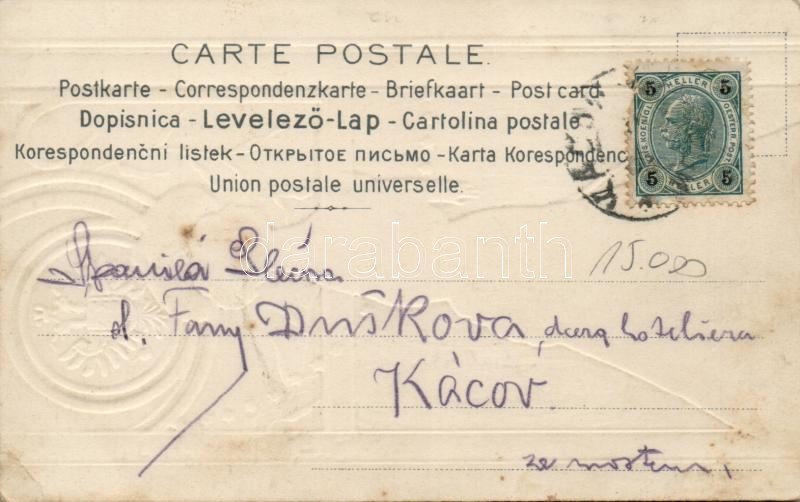 CARTE POSTALE.
Postkarte - Correspondenzkarte - Briefkaart - Post card
Dopisnica - Levelező-Lap - Cartolina postale
Korespondenčni listek - Открытое письмо - Karta Korespondenc
Union postale universelle.
5 HELLER 5
KAIS. KOENIGL. OESTERR. POST
5 HELLER 5
darabanth
15.000
sl. Fany Duškova,
Kácov.
za mostem,